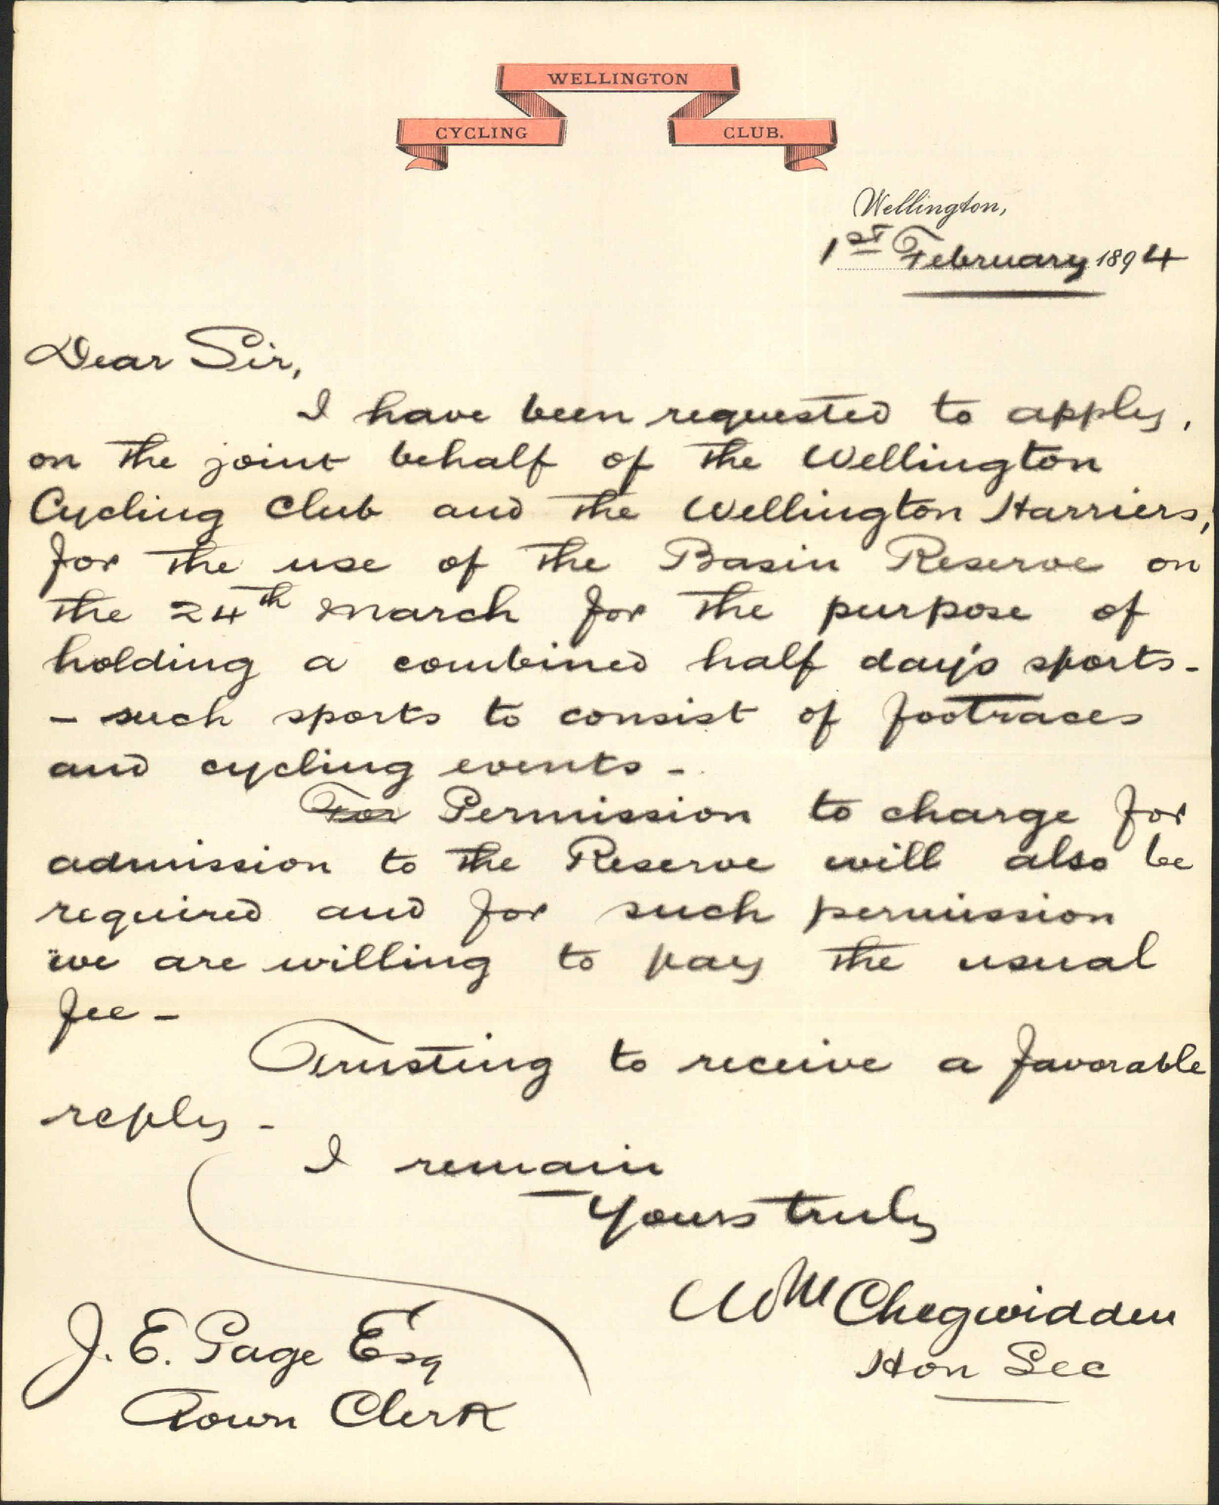 WELLINGTON
CYCLING CLUB.
Wellington,
1st February 1894
Dear Sir,
I have been requested to apply,
on the joint behalf of the Wellington
Cycling Club and the Wellington Harriers,
for the use of the Basin Reserve on
the 24th March for the purpose of
holding a combined half day's sports-
- such sports to consist of footraces
and cycling events -
For Permission to charge for
admission to the Reserve will also be
required and for such permission
we are willing to pay the usual
fee -
Trusting to receive a favorable
reply -
I remain
Yours truly
Wm Chegwidden
Hon Sec
J. E. Page Esq
Town Clerk